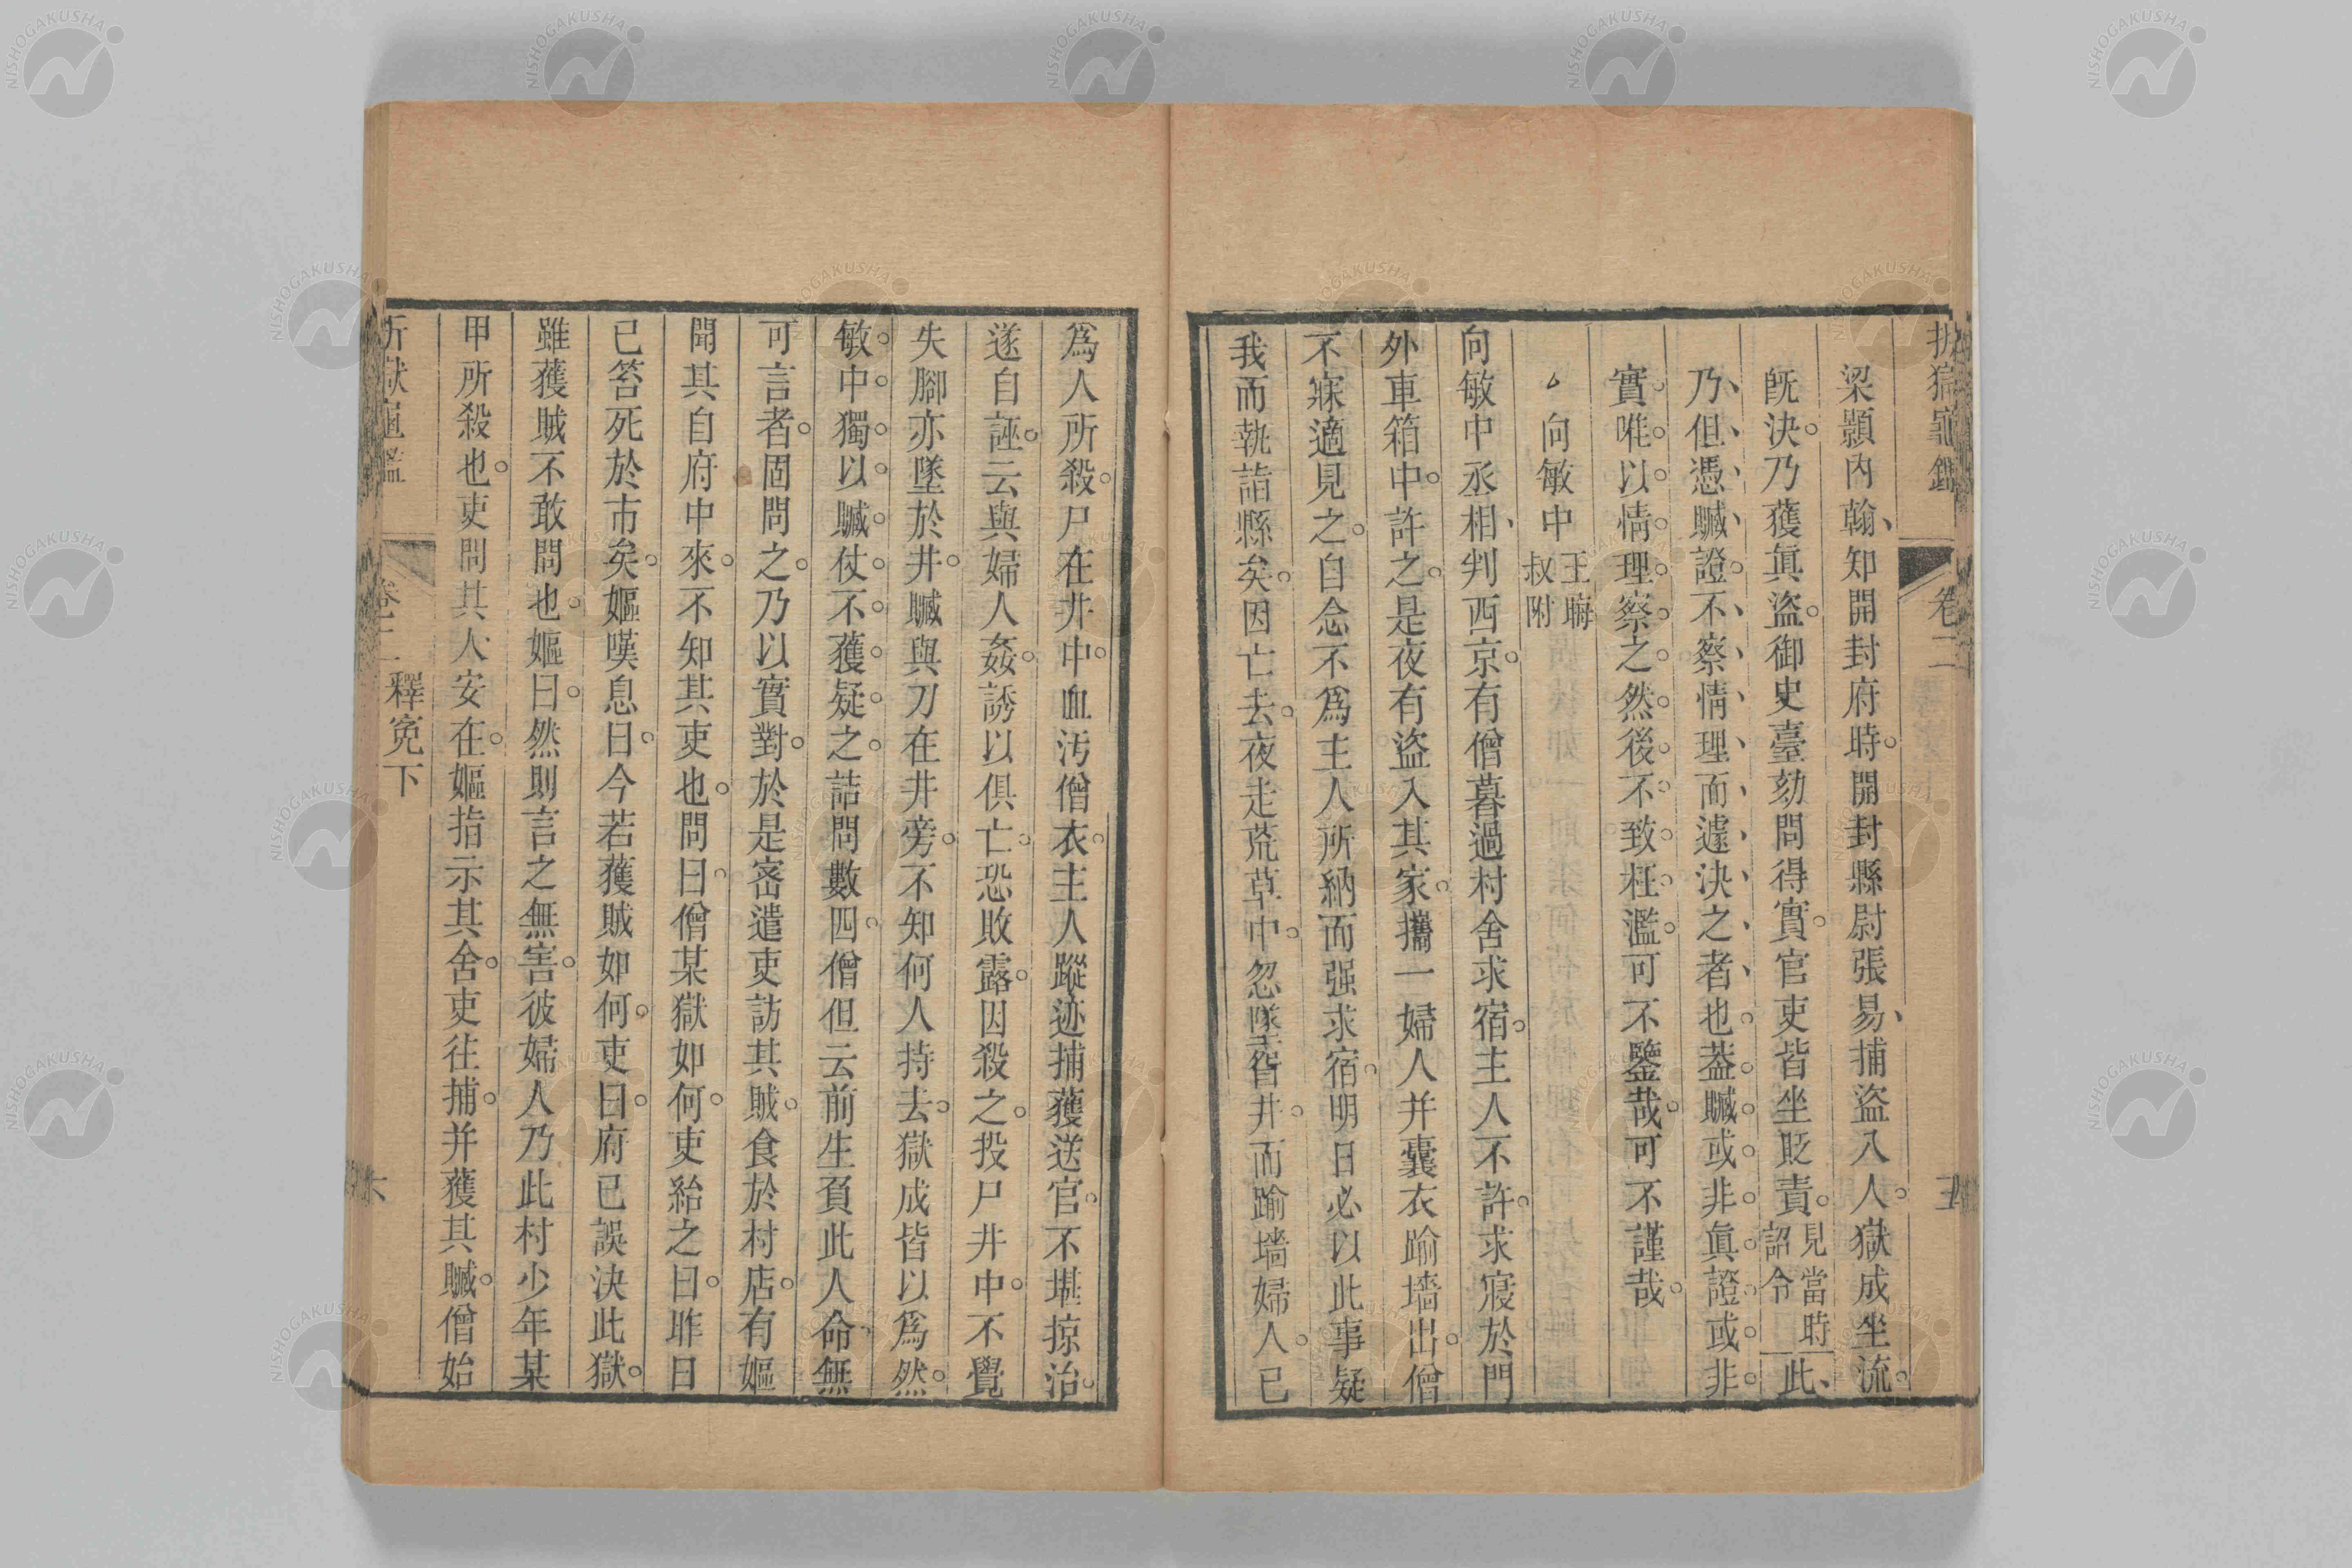 折獄龜鑑 卷二 五
梁顥內翰知開封府時開封縣尉張易捕盜入人獄成坐流
旣決乃獲眞盜御史臺劾問得實官吏皆坐貶責見當時詔令此
乃但憑贓證不察情理而遽決之者也葢贓或非眞證或非
實唯以情理察之然後不致枉濫可不鑒哉可不謹哉
向敏中王晦叔附
向敏中丞相判西京有僧暮過村舍求宿主人不許求寢於門
外車箱中許之是夜有盜入其家攜一婦人并囊衣踰墻出僧
不寐適見之自念不爲主人所納而强求宿明日必以此事疑
我而執詣縣矣因亡去夜走荒草中忽墜眢井而踰墻婦人已
爲人所殺尸在井中血汚僧衣主人蹤迹捕獲送官不堪掠治
遂自誣云與婦人姦誘以俱亡恐敗露因殺之投尸井中不覺
失腳亦墜於井贓與刀在井旁不知何人持去獄成皆以爲然
敏中獨以贓仗不獲疑之詰問數四僧但云前生負此人命無
可言者固問之乃以實對於是密遣吏訪其賊食於村店有嫗
聞其自府中來不知其吏也問曰僧某獄如何吏紿之曰昨日
已笞死於市矣嫗嘆息曰今若獲賊如何吏曰府已誤決此獄
雖獲賊不敢問也嫗曰然則言之無害彼婦人乃此村少年某
甲所殺也吏問其人安在嫗指示其舍吏往捕并獲其贓僧始
折獄龜鑑 卷二 釋寃下 六
NISHOGAKUSHA